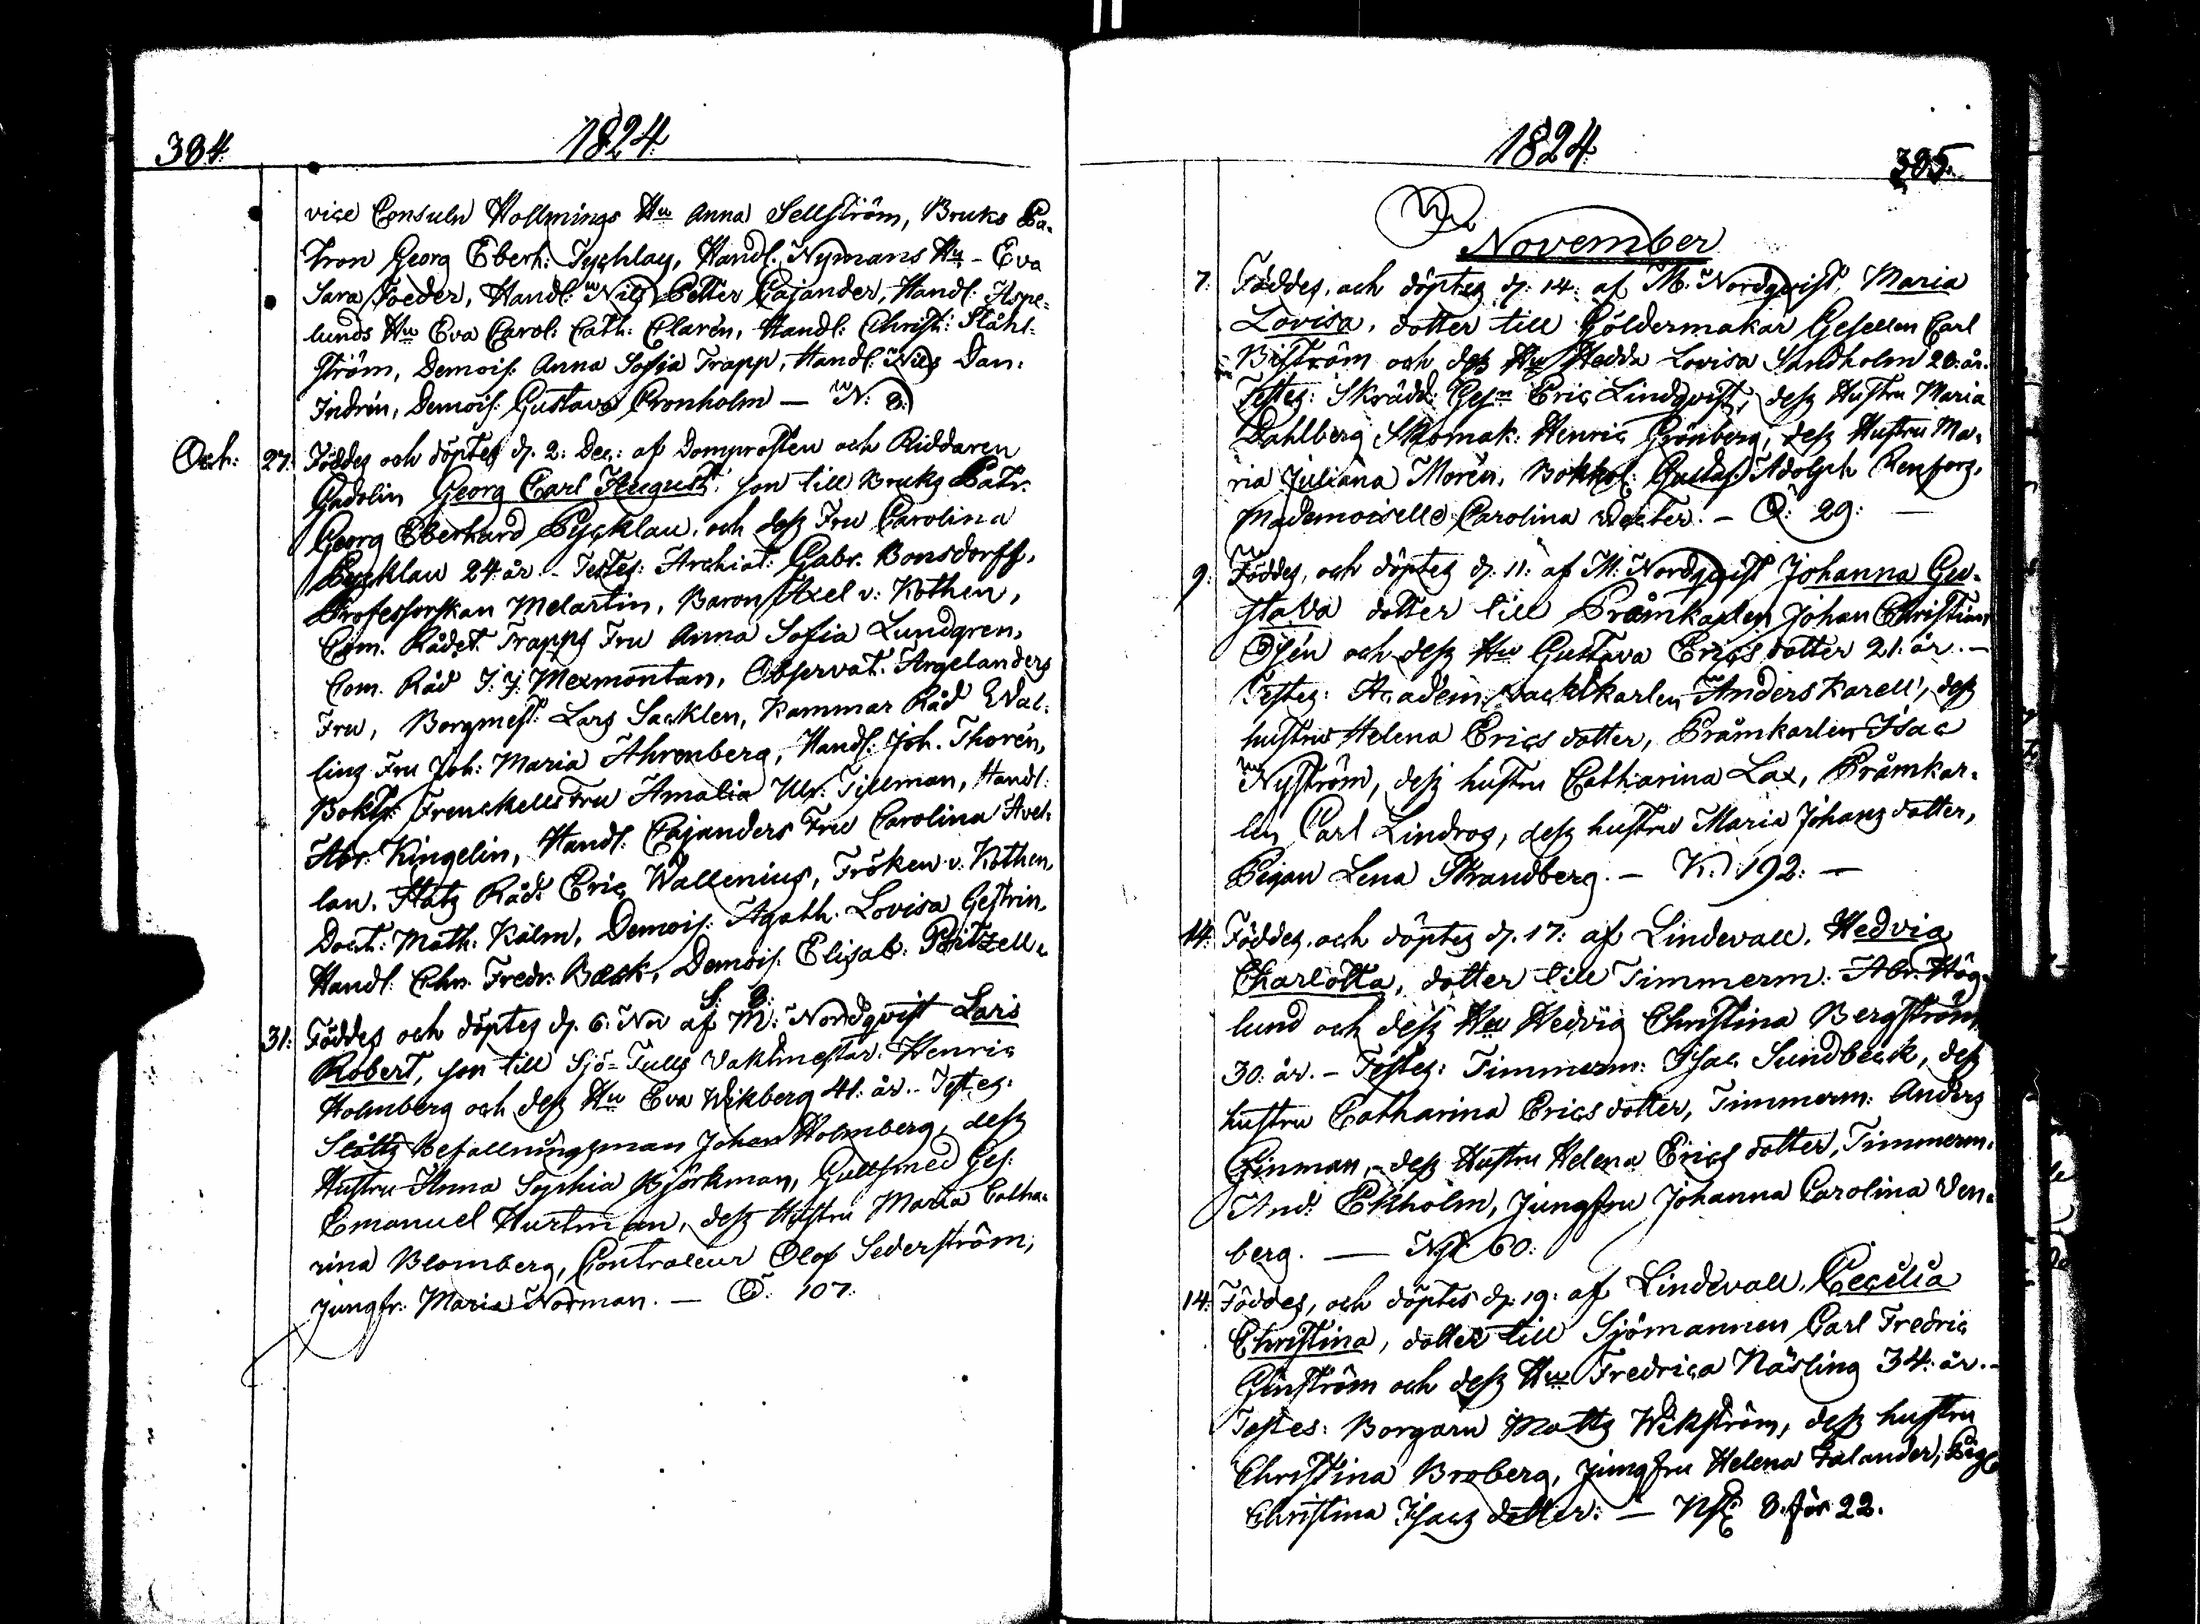 384.
1824.
vice Consuln Hollmings Hu Anna Sellström, Bruks Pa-
tron Georg Eberh: Handl. Nymans Hu Eva
Sara Handl: Nils Petter Cajander, Handl: Aspe-
lunds Hu Eva Carol: Cath: Clarén, Handl: Christ: Ståhl-
ström, Demois: Anna Sofia Trapp, Handl: Nils Dan:
Indrén, Demois: Gustava Cronholm — N: 8.
Oct: 27: Föddes och döptes d. 2: Dec: af Domprosten och Riddaren
Gadolin Georg Carl August, son till Bruks Patr.
Georg Eberhard och dess Fru Carolina
24 år. – Testes: Archiat: Gabr. Bonsdorff,
Professorskan Melartin, Baron Axel v: Kothen,
Com. Rådet Trapps Fru Anna Sofia Lundgren,
Com. Råd J: J: Mexmontan, Observat: Argelanders
Fru, Borgmest: Lars Sacklen, Kammar Råd Wal-
lins Fru Joh: Maria Ahrenberg, Handl: Joh. Thorén,
Boktr: Frenckells Fru Amalia Ulr: Tillman, Handl:
Abr: Kingelin, Handl: Cajanders Fru Carolina Avel-
lan. Stats Råd: Eric Wallenius, Fröken v: Kothen,
Doct: Math: Kalm, Demois: Agath: Lovisa Gestrin,
Handl: Chr. Fredr: Back, Demois: Elisab:
S: B:
31: Föddes och döptes d. 6. Nov af M: Nordqvist Lars
Robert, son till Sjö-Tulls Vaktmestar: Henric
Holmberg och dess Hu Eva Wikberg 41: år. – Testes:
Slotts Befallningsman Johan Holmberg, dess
Hustru Anna Sophia Björkman, Gullsmed Ges:
Emanuel Hurtman, dess Hustru Maria Catha-
rina Blomberg, Contraleur Olof Sederström,
jungfr: Maria Norman. — Q: 107.
1824.
385.
November
7: Föddes, och döptes d: 14: af M. Nordqvist, Maria
Lovisa, dotter till Göldermakar Gesellen Carl
Biström och dess Hu Hedda Lovisa Sandholm 28: år.
Testes: Skrädd: Ges:n Eric Lindqvist, dess Hustru Maria
Dahlberg Skomak: Henric Grönberg, dess Hustru Ma-
ria Juliana Morén, Bokhol: Gustaf Adolph Renfors,
Mademoiselle Carolina – Q: 29: —
9: Föddes, och döptes d: 11: af M: Nordqvist Johanna Gu-
stava dotter till Pråmkarlen Johan Christian
och dess Hu Gustava Erics dotter 21: år. —
Testes: Academ: vacktkarlen Anders Karell, dess
hustru Helena Erics dotter, Pråmkarlen Isac
Nyström, dess hustru Catharina Lax, Pråmkar-
len Carl Lindros, dess hustru Maria Johans dotter,
Pigan Lena Strandberg. — K. 192: —
14: Föddes, och döptes d. 17: af Lindevall, Hedvig
Charlotta, dotter till Timmerm: Abr: Hög-
lund och dess Hu Hedvig Christina Bergström
30: år. – Testes: Timmerm: Isac Sundbeck, dess
hustru Catharina Erics dotter, Timmerm: Anders
Ginman, dess Hustru Helena Erics dotter, Timmerm.
And: Ekholm, Jungfru Johanna Carolina Ven-
berg. — 60:
14: Föddes, och döptes d. 19: af Lindevall, Cecilia
Christina, dotter till Sjömannen Carl Fredric
Genström och dess Hu Fredrica Näsling 34: år. —
Testes: Borgarn Matts Wikström, dess hustru
Christina Broberg, jungfru Helena Falander, Pig:
Christina Isacs dotter: — 8. för 22.